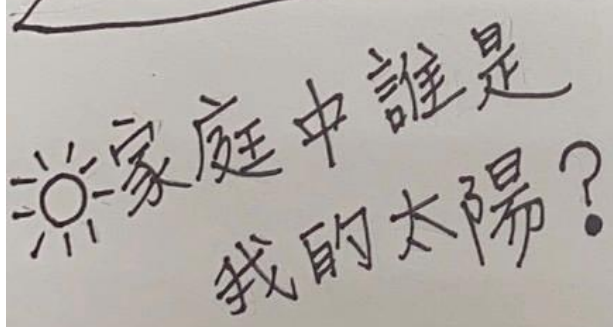 家庭中誰是
我的太陽?